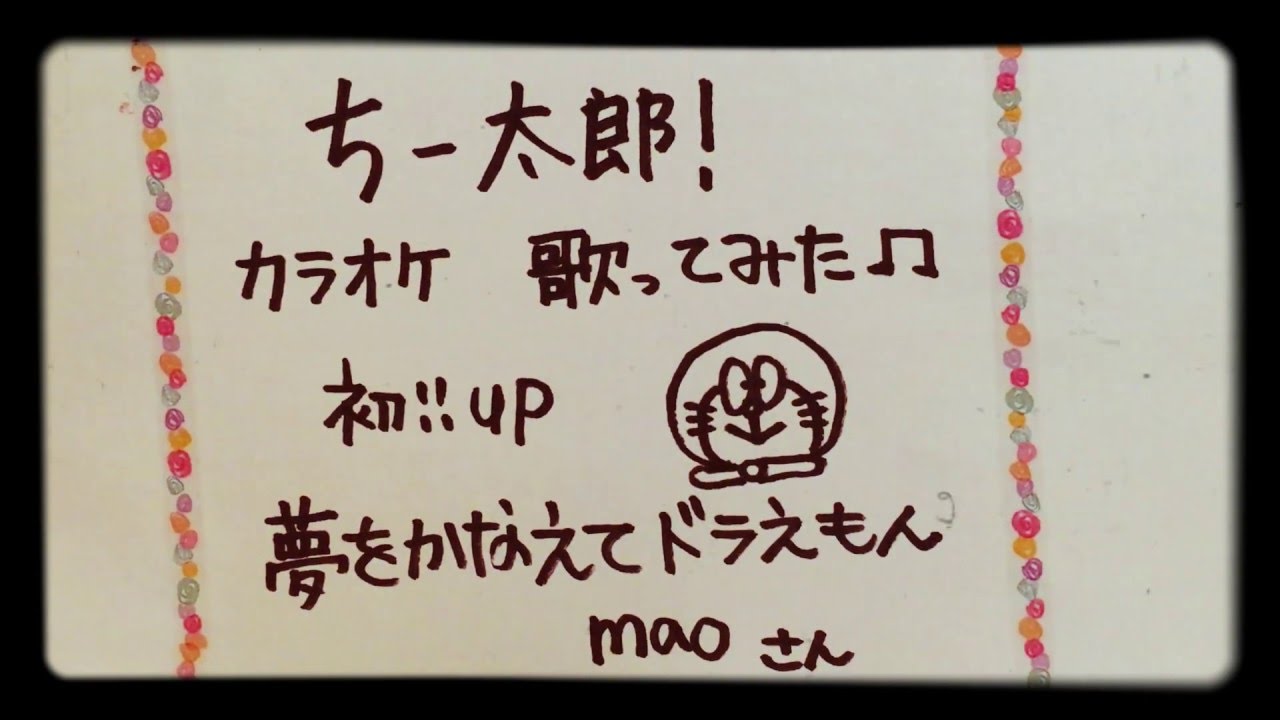 ちー太郎!
カラオケ 歌ってみた♫
初!!up
夢をかなえてドラえもん
mao さん